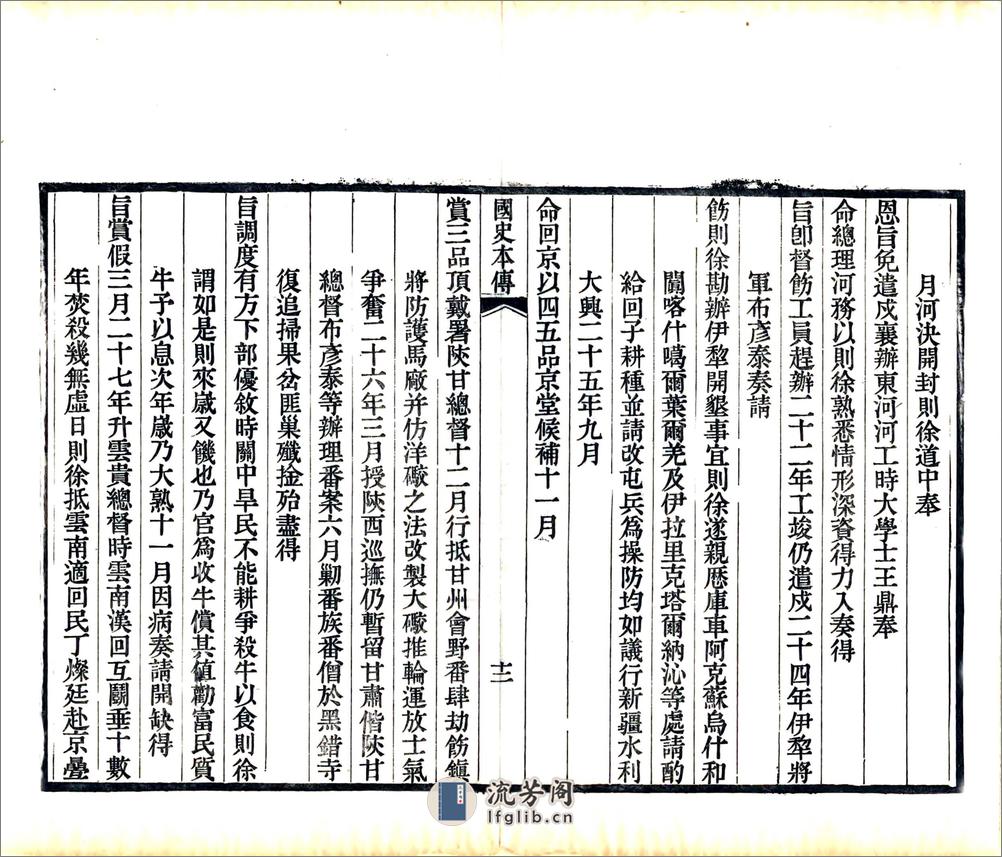 月河決開封則徐道中奉
恩旨免遣戍襄辦東河河工時大學士王鼎奉
命總理河務以則徐熟悉情形深資得力入奏得
旨卽督飭工員趕辦二十二年工竣仍遣戍二十四年伊犂將
軍布彥泰奏請
飭則徐勘辦伊犂開墾事宜則徐遂親歷庫車阿克蘇烏什和
闐喀什噶爾葉爾羌及伊拉里克塔爾納沁等處請酌
給回子耕種並請改屯兵爲操防均如議行新疆水利
大興二十五年九月
命回京以四五品京堂候補十一月
國史本傳
十二
賞三品頂戴署陝甘總督十二月行抵甘州會野番肆劫飭鎭
將防護馬廠并仿洋礮之法改製大礮推輪運放士氣
爭奮二十六年三月授陝西巡撫仍暫留甘肅偕陝甘
總督布彥泰等辦理番案六月勦番族番僧於黑錯寺
復追掃果岔匪巢殲捦殆盡得
旨調度有方下部優敘時關中旱民不能耕爭殺牛以食則徐
謂如是則來歲又饑也乃官爲收牛償其值勸富民質
牛予以息次年歲乃大熟十一月因病奏請開缺得
旨賞假三月二十七年升雲貴總督時雲南漢回互鬭垂十數
年焚殺幾無虛日則徐抵雲南適回民丁燦廷赴京疊
流芳阁
lfglib.cn